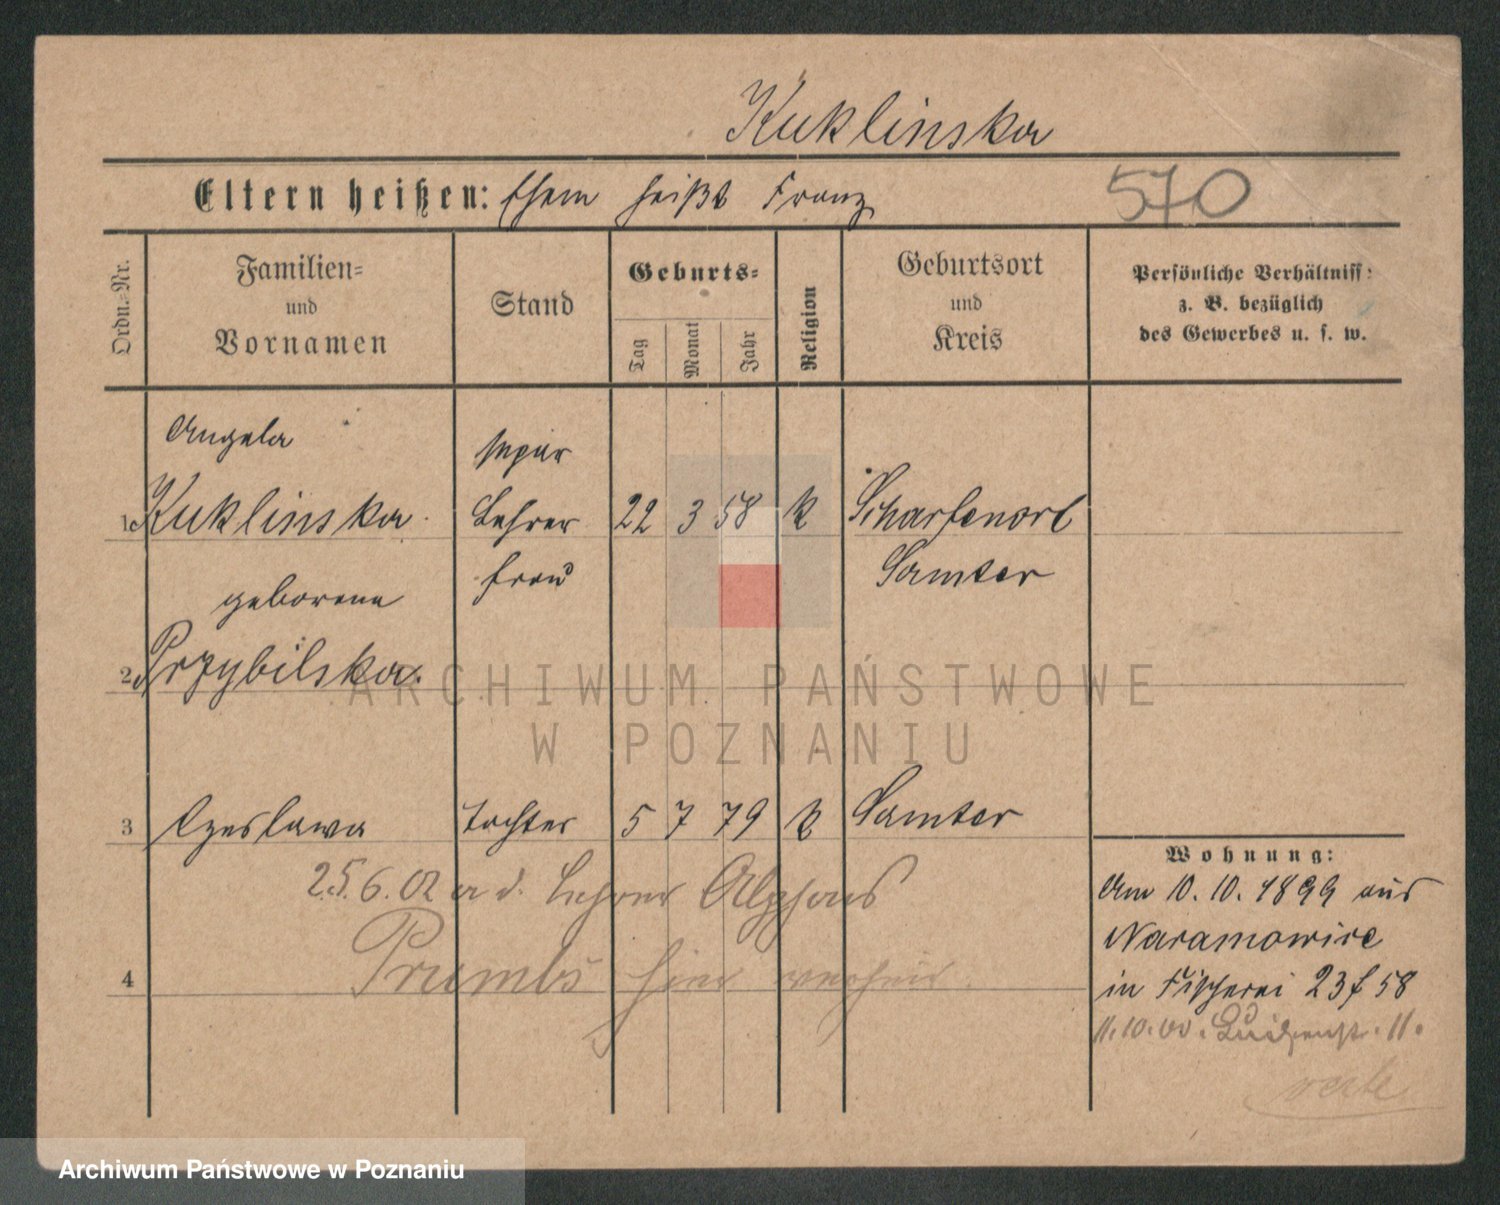 Kuklinska
Eltern heißen: Ehem heißt Franz 570
Ordn.-Nr.
Familien-
und
Vornamen
Stand
Geburts-
Tag
Monat
Jahr
Religion
Geburtsort
und
Kreis
Persönliche Verhältniss:
z. B. bezüglich
des Gewerbes u. s. w.
Angela
separ
1 Kuklinska Lehrer 22 3 58 k Scharfenort
frau Samter
geborene
2 Przybilska.
ARCHIWUM PAŃSTWOWE
W POZNANIU
3 Czeslawa Tochter 5 7 79 k Samter
25.6.02 a d. Lehrer Alphons
4 Prumbs hier verheir.
Wohnung:
Am 10. 10. 1899 aus
Naramowice
in Fischerei 23 f 58
11.10.00.
Archiwum Państwowe w Poznaniu